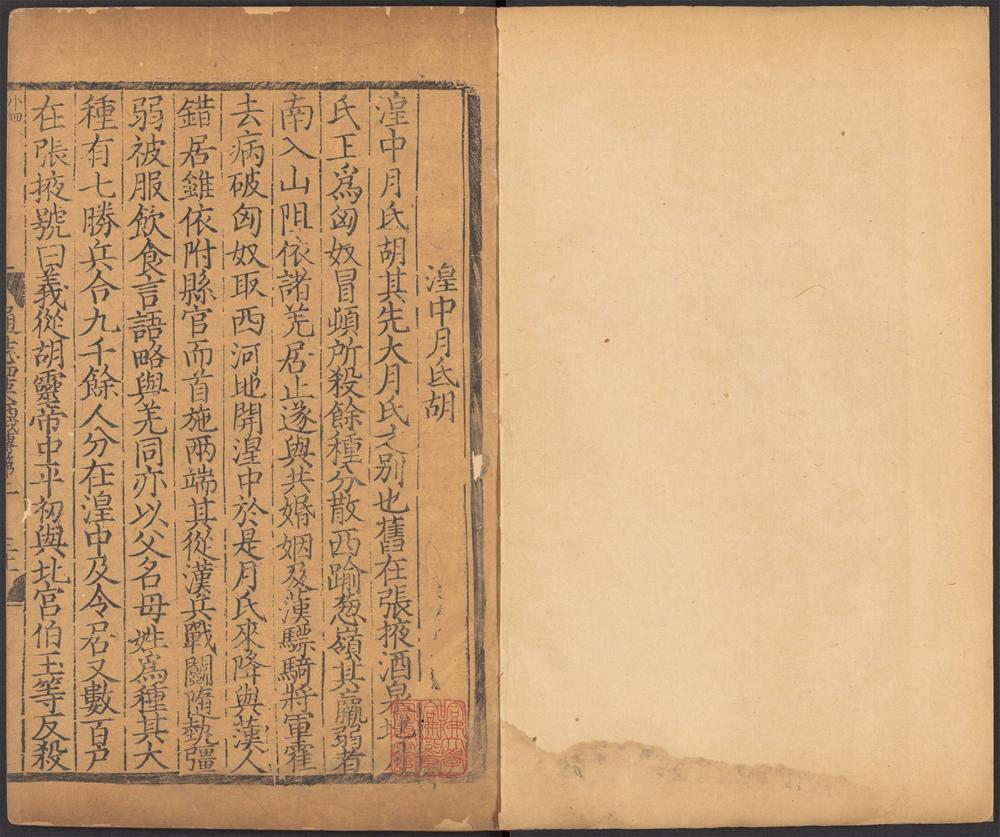 湟中月氐胡
湟中月氏胡其先大月氏之別也舊在張掖酒泉地月
氏王爲匈奴冒頓所殺餘種分散西踰葱嶺其羸弱者
南入山阻依諸羌居止遂與共婚姻及漢驃騎將軍霍
去病破匈奴取西河地開湟中於是月氏來降與漢人
錯居雖依附縣官而首施兩端其從漢兵戰鬭隨埶彊
弱被服飲食言語略與羌同亦以父名母姓爲種其大
種有七勝兵合九千餘人分在湟中及令居又數百戶
在張掖號曰義從胡靈帝中平初與北宮伯玉等反殺
小四
通志四夷傳第二